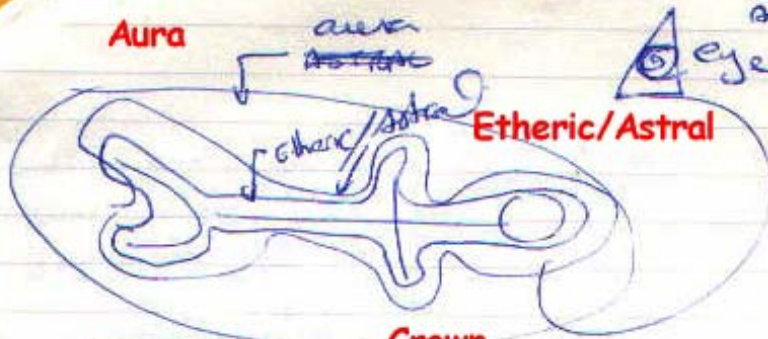 Aura
aura
ASTRAL
eye
etheric/Astral
Etheric/Astral
Crown